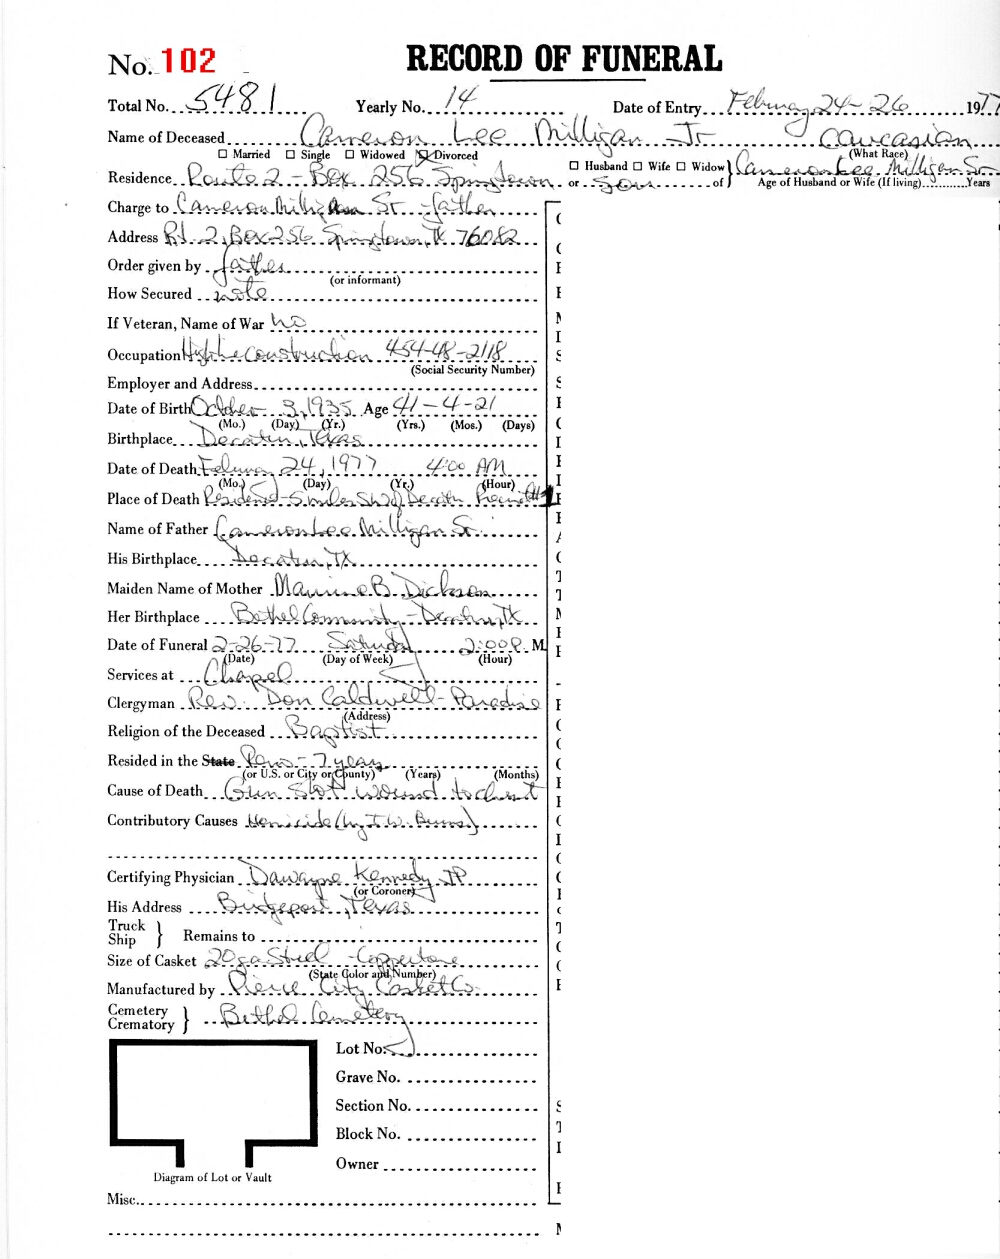 No. 102 RECORD OF FUNERAL
Total No. 5481 Yearly No. 14 Date of Entry February 24-26 1977
Name of Deceased Cameron Lee Milligan Jr Caucasian
☐ Married ☐ Single ☐ Widowed ☒ Divorced (What Race)
☐ Husband ☐ Wife ☐ Widow Cameron Lee Milligan Sr.
Residence Route 2 - Box 256 Springtown or son of Age of Husband or Wife (If living) Years
Charge to Cameron Milligan Sr. - father
Address Rt. 2, Box 256 Springtown, TX 76082
Order given by father
(or informant)
How Secured note
If Veteran, Name of War no
Occupation Construction 454-48-2118
(Social Security Number)
Employer and Address
Date of Birth October 3, 1935 Age 41-4-21
(Mo.) (Day) (Yr.) (Yrs.) (Mos.) (Days)
Birthplace Decatur, Texas
Date of Death February 24, 1977 4:00 AM
(Mo.) (Day) (Yr.) (Hour)
Place of Death Residence - 5 miles SW of Decatur Precinct #1
Name of Father Cameron Lee Milligan Sr.
His Birthplace Decatur, TX
Maiden Name of Mother B. Dickson
Her Birthplace Bethel Community - Decatur, TX
Date of Funeral 2-26-77 Saturday 2:00 P. M.
(Date) (Day of Week) (Hour)
Services at Chapel
Clergyman Rev. Don Caldwell - Paradise
(Address)
Religion of the Deceased Baptist
Resided in the State - 7 years
(or U.S. or City or County) (Years) (Months)
Cause of Death Gun Shot wound to chest
Contributory Causes Homicide (by J.W. Burns)
Certifying Physician Dawayne Kennedy JP
(or Coroner)
His Address Bridgeport, Texas
Truck
Ship } Remains to
Size of Casket 20 ga Steel - Coppertone
(State Color and Number)
Manufactured by Pierce City Casket Co.
Cemetery
Crematory } Bethel Cemetery
Lot No.
Grave No.
Section No.
Block No.
Owner
Diagram of Lot or Vault
Misc.